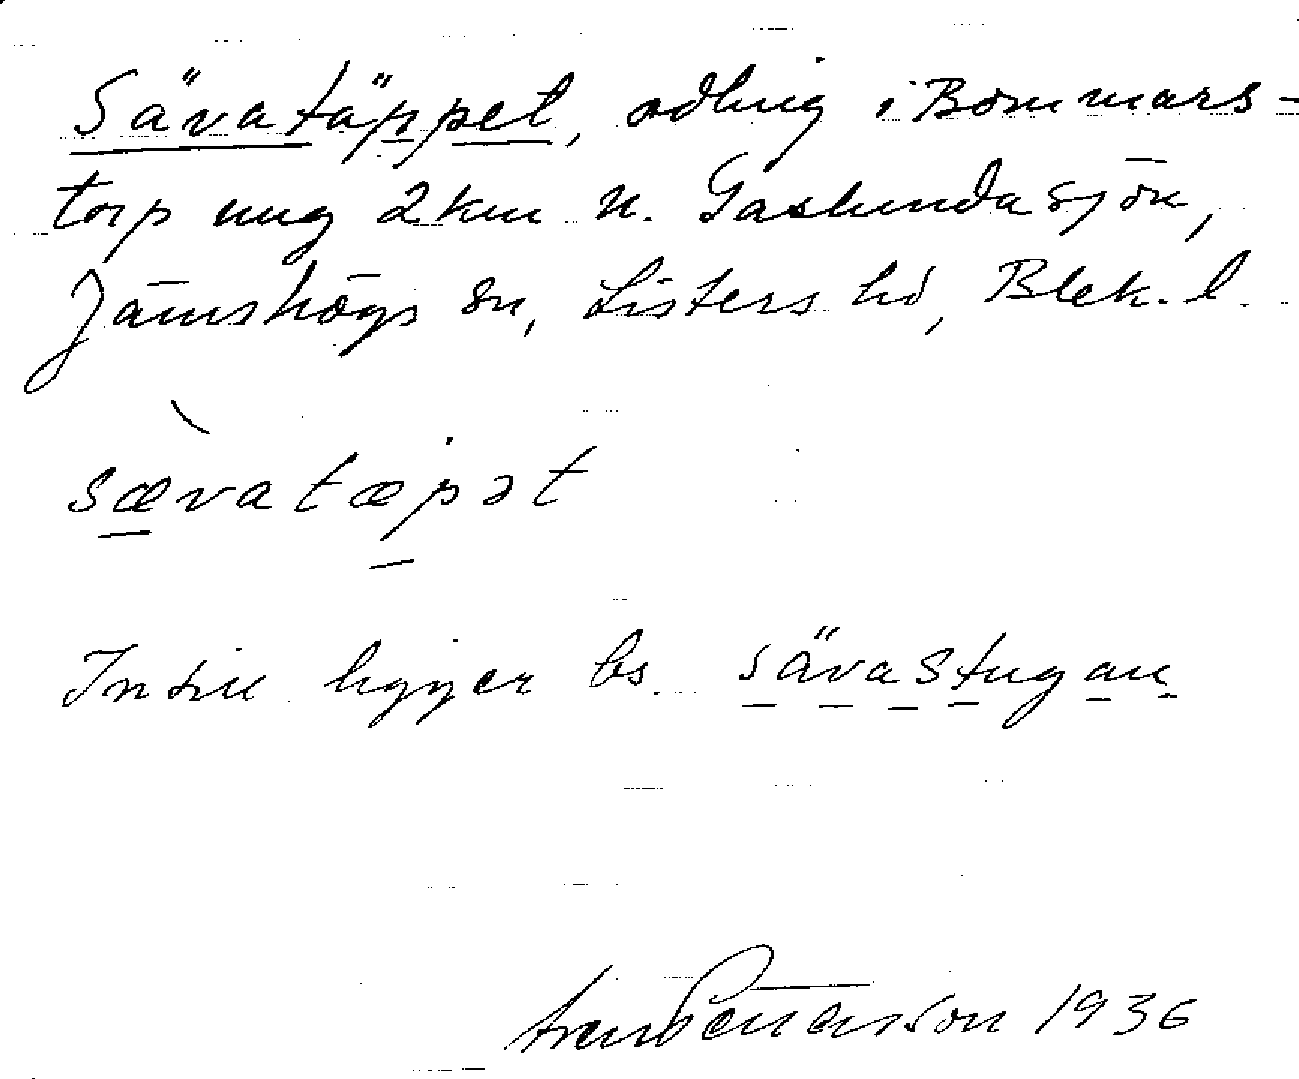 Sävatäppet, odling i Bommars-
torp ung 2 km N. Gaslundasjön,
Jämshögs sn, Listers hd, Blek. l.
sævatæpət
Intill ligger bs. sävastugan
Pettersson 1936